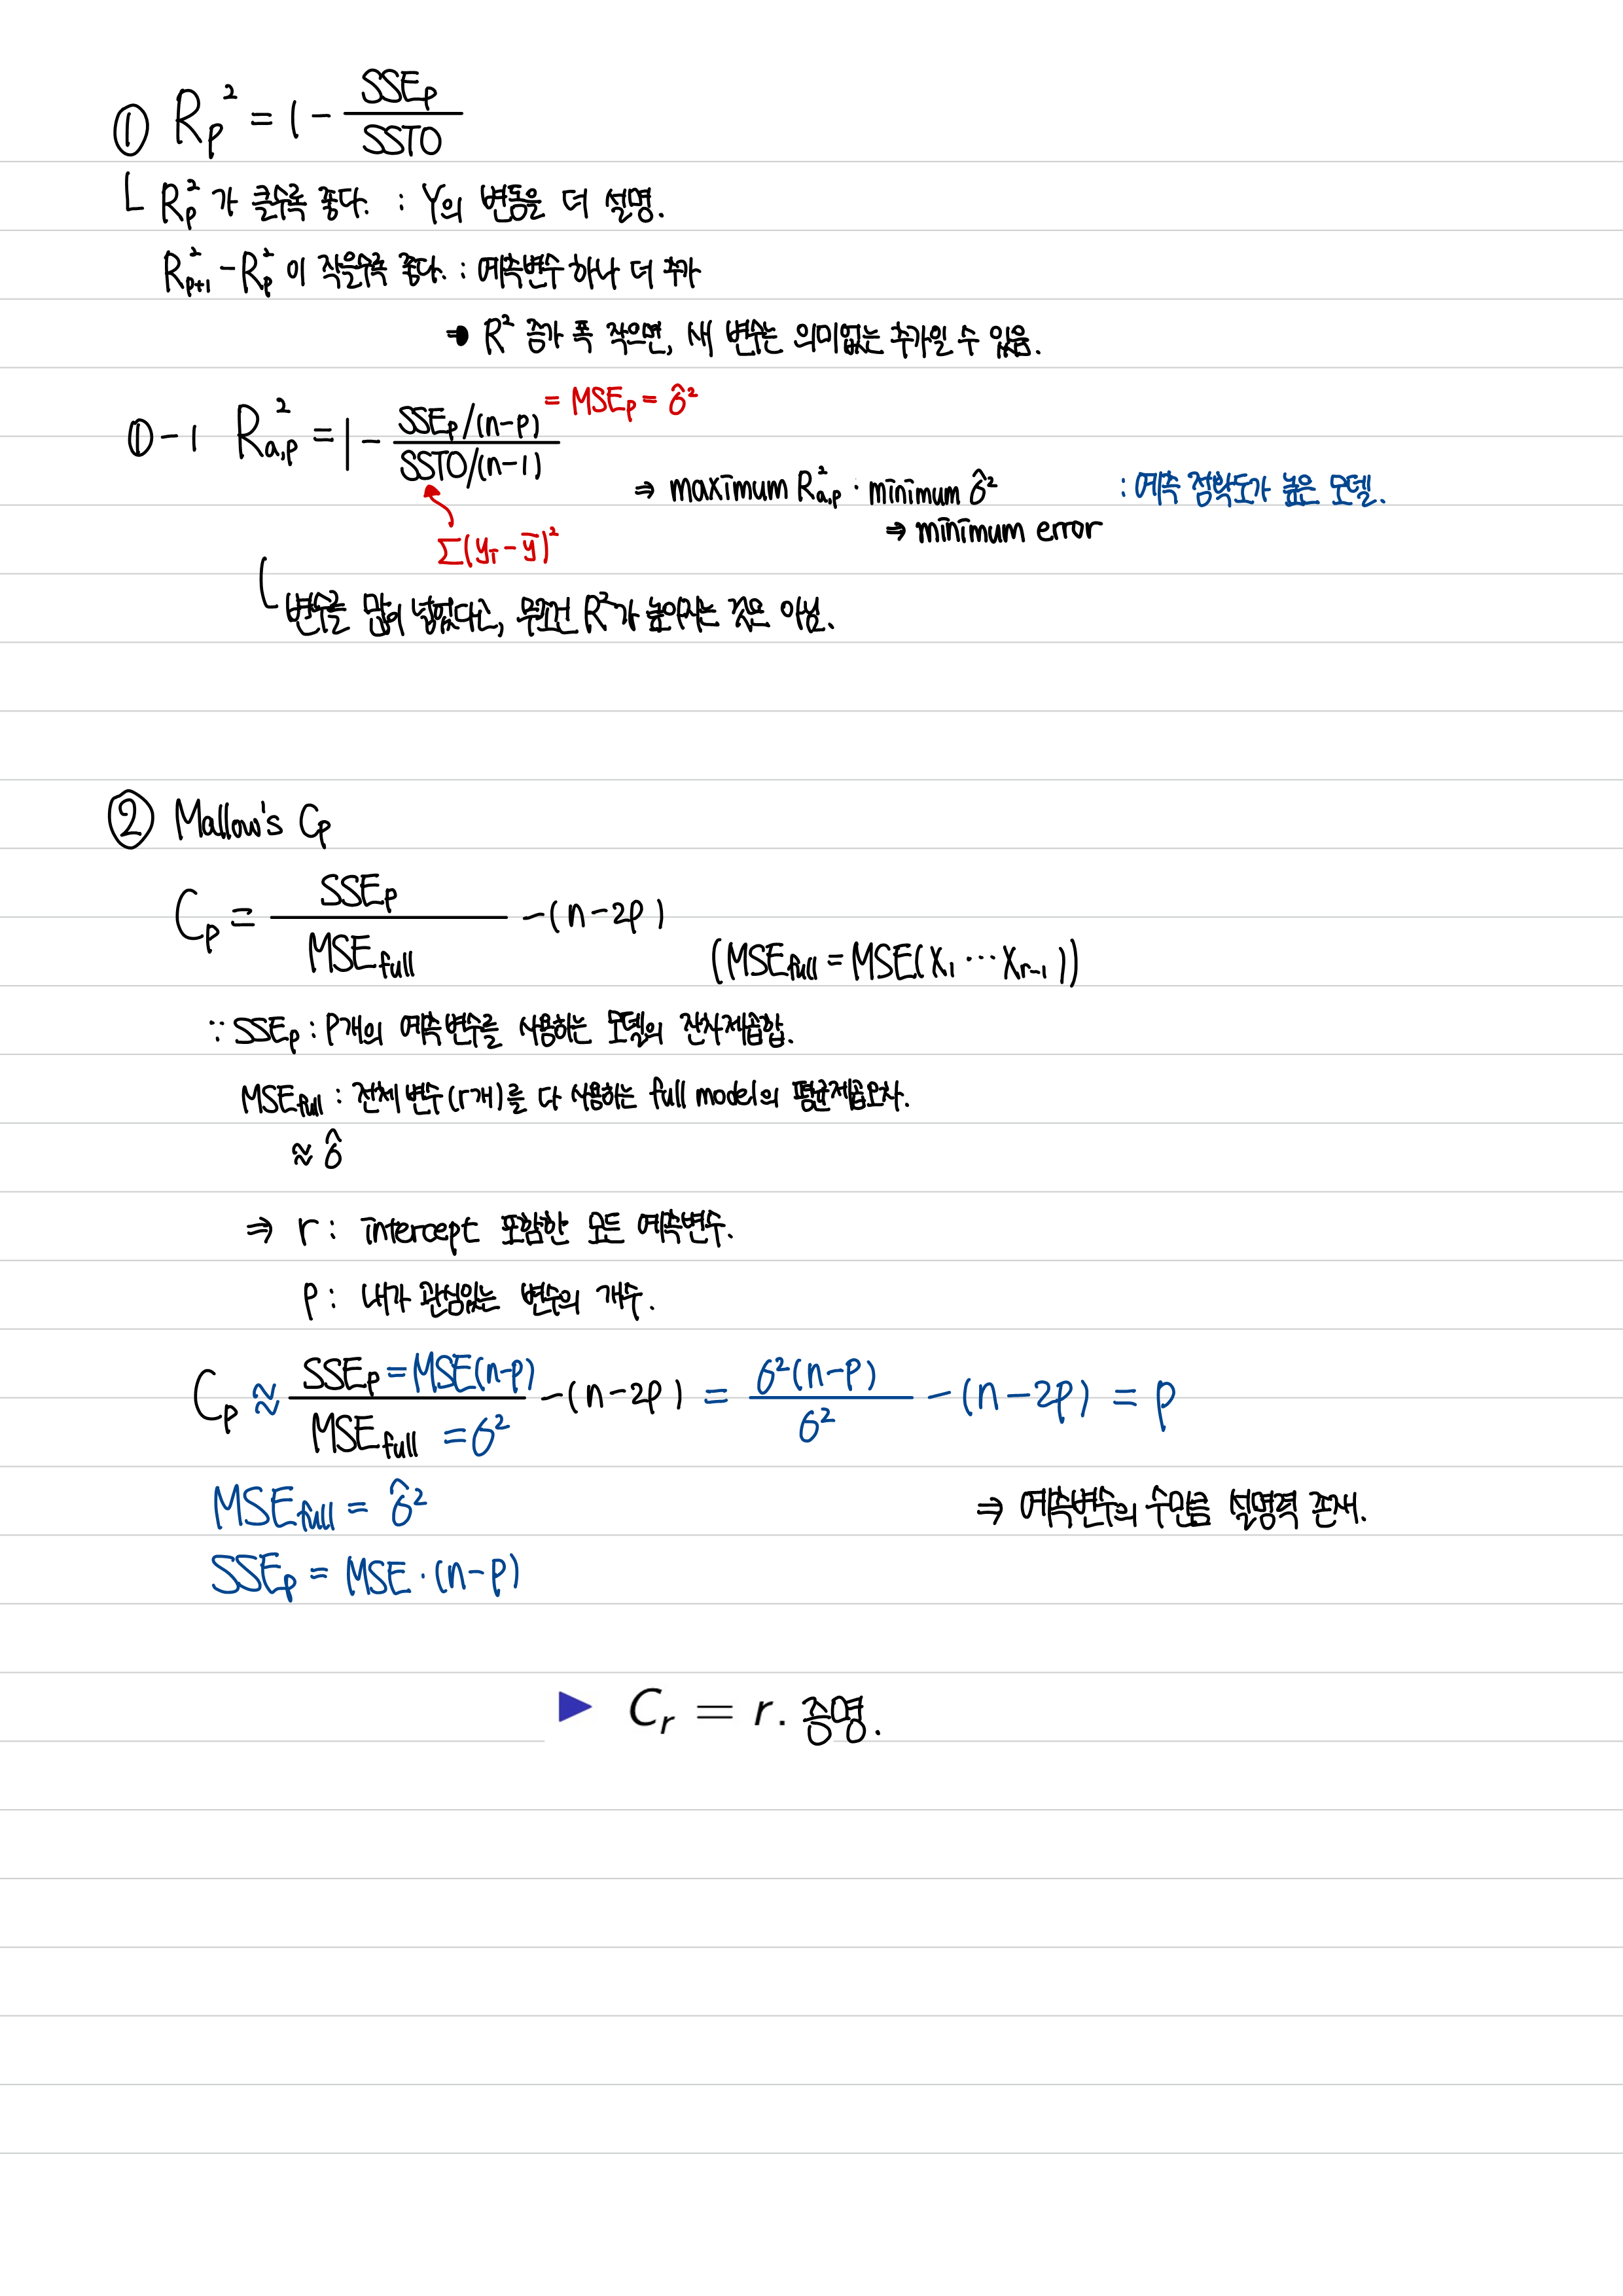 ① Rp² = 1 - SSEp / SSTO
Rp² 가 클수록 좋다. : Y의 변동을 더 설명.
R²p+1 - R²p 이 작을수록 좋다. : 예측변수 하나 더 추가
⇒ R² 증가 폭 작으면, 새 변수는 의미없는 추가일 수 있음.
①-1 R²a,p = 1 - SSEp/(n-p) / SSTO/(n-1)
= MSEp = σ̂²
⇒ maximum R²a,p · minimum σ̂² : 예측 정확도가 높은 모델.
⇒ minimum error
Σ(yi - ȳ)²
변수를 많이 넣었다고, 무조건 R²가 높아지는 것은 아님.
② Mallow's Cp
Cp = SSEp / MSEfull - (n-2p)
(MSEfull = MSE(X1 ⋯ Xr-1))
∵ SSEp : P개의 예측변수를 사용하는 모델의 잔차제곱합.
MSEfull : 전체 변수(r개)를 다 사용하는 full model의 평균제곱오차.
≈ σ̂
⇒ r : intercept 포함한 모든 예측변수.
p : 내가 관심있는 변수의 개수.
Cp ≈ SSEp = MSE(n-p) / MSEfull = σ² - (n-2p) = σ²(n-p) / σ² - (n-2p) = p
MSEfull = σ̂²
⇒ 예측변수의 수만큼 설명력 존재.
SSEp = MSE · (n-p)
▶ Cr = r. 증명.